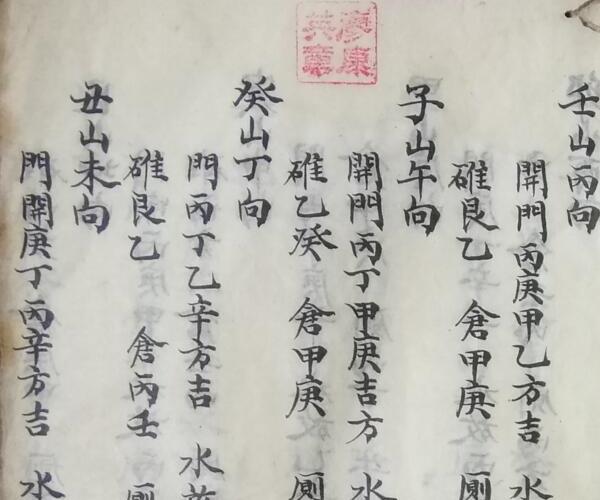 廖康英章
壬山丙向
開門丙庚甲乙方吉
碓艮乙 倉甲庚 厠
子山午向
開門丙丁甲庚吉方 水
碓乙癸 倉甲庚 厠
癸山丁向
門丙丁乙辛方吉 水
碓艮乙 倉丙壬 厠
丑山未向
門開庚丁丙辛方吉 水